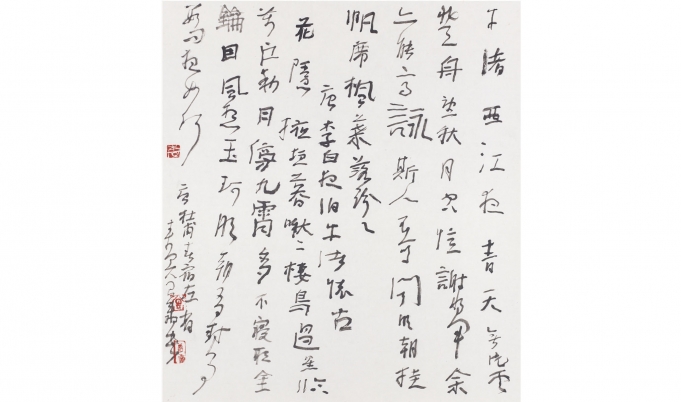 牛渚西江夜青天無片雲
登舟望秋月空憶謝將軍余
亦能高詠斯人不可聞明朝挂
帆席楓葉落紛〻
唐李白夜泊牛渚懷古
花隱掖垣暮啾〻棲鳥過星臨
萬戶動月傍九霄多不寢聽金
鑰因風想玉珂明朝有封事
數問夜如何
唐杜甫春宿左省